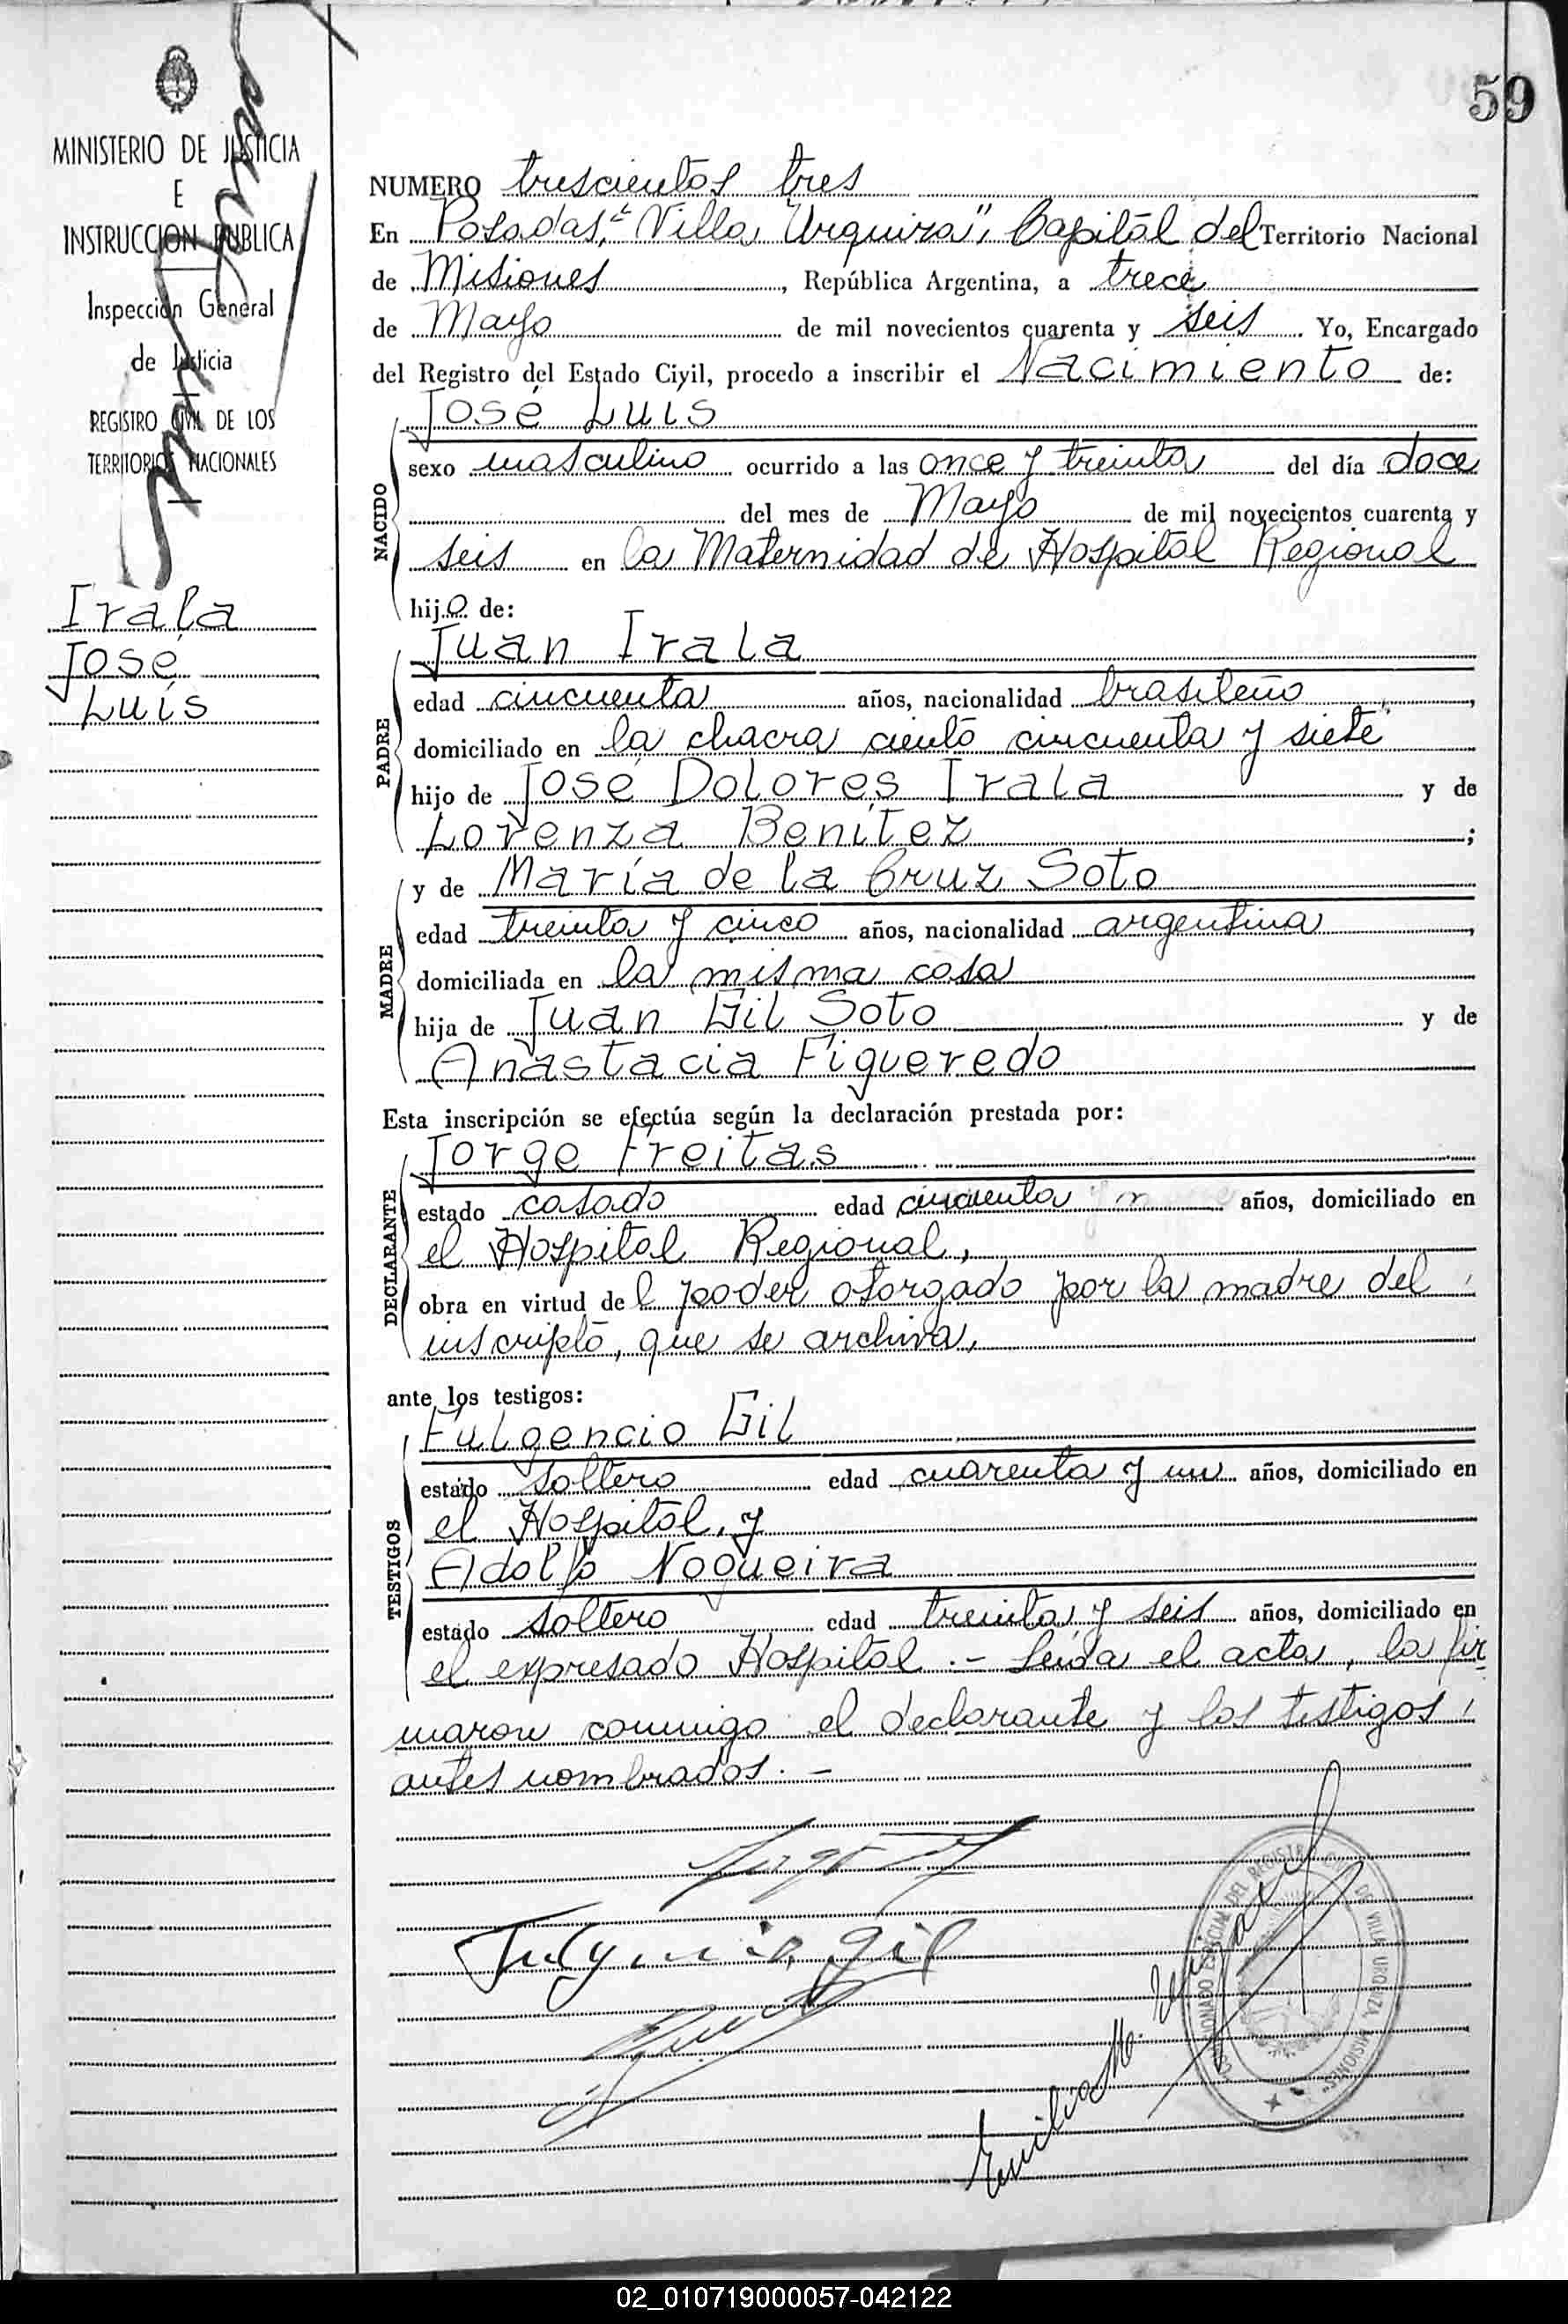 59
MINISTERIO DE JUSTICIA
E
INSTRUCCION PUBLICA
Inspección General
de Justicia
REGISTRO CIVIL DE LOS
TERRITORIOS NACIONALES
Irala
José
Luis
NUMERO trescientos tres
En Posadas, "Villa Urquiza", Capital del Territorio Nacional
de Misiones, República Argentina, a trece
de Mayo de mil novecientos cuarenta y seis. Yo, Encargado
del Registro del Estado Civil, procedo a inscribir el Nacimiento de:
José Luis
NACIDO
sexo masculino ocurrido a las once y treinta del día doce
del mes de Mayo de mil novecientos cuarenta y
seis en la Maternidad del Hospital Regional
hijo de:
Juan Irala
PADRE
edad cincuenta años, nacionalidad brasileño,
domiciliado en la chacra ciento cincuenta y siete
hijo de José Dolores Irala y de
Lorenza Benítez;
y de María de la Cruz Soto
MADRE
edad treinta y cinco años, nacionalidad argentina,
domiciliada en la misma casa
hija de Juan Gil Soto y de
Anastacia Figueredo
Esta inscripción se efectúa según la declaración prestada por:
Jorge Freitas
DECLARANTE
estado casado edad cincuenta años, domiciliado en
el Hospital Regional,
obra en virtud del poder otorgado por la madre del
inscripto, que se archiva,
ante los testigos:
Fulgencio Gil
TESTIGOS
estado soltero edad cuarenta y un años, domiciliado en
el Hospital, y
Adolfo Nogueira
estado soltero edad treinta y seis años, domiciliado en
el expresado Hospital.- Leída el acta, la fir
maron conmigo el declarante y los testigos
antes nombrados.-
Fulgencio Gil
Emilio M.
ESPECIAL DEL REGISTRO CIVIL DE VILLA URQUIZA, MISIONES
02_010719000057-042122